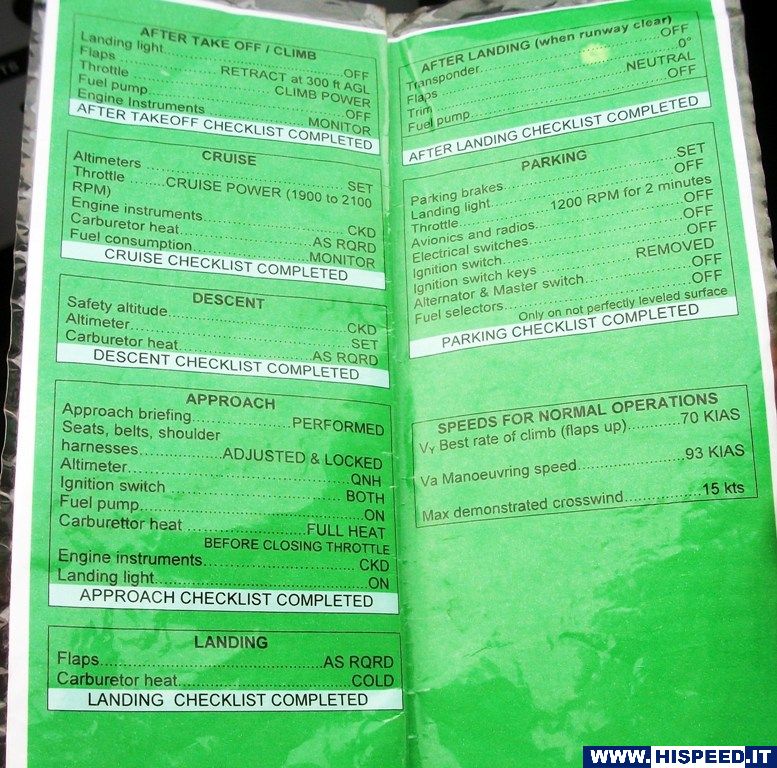 AFTER TAKE OFF / CLIMB
Landing light..............................OFF
Flaps ............RETRACT at 300 ft AGL
Throttle .....................CLIMB POWER
Fuel pump..................................OFF
Engine Instruments.................MONITOR
AFTER TAKEOFF CHECKLIST COMPLETED
CRUISE
Altimeters ..................................SET
Throttle ........CRUISE POWER (1900 to 2100
RPM)
Engine instruments.........................CKD
Carburetor heat.......................AS RQRD
Fuel consumption....................MONITOR
CRUISE CHECKLIST COMPLETED
DESCENT
Safety altitude..............................CKD
Altimeter......................................SET
Carburetor heat.......................AS RQRD
DESCENT CHECKLIST COMPLETED
APPROACH
Approach briefing.................PERFORMED
Seats, belts, shoulder
harnesses.............ADJUSTED & LOCKED
Altimeter.....................................QNH
Ignition switch ............................BOTH
Fuel pump....................................ON
Carburettor heat ...................FULL HEAT
BEFORE CLOSING THROTTLE
Engine instruments.........................CKD
Landing light.................................ON
APPROACH CHECKLIST COMPLETED
LANDING
Flaps...................................AS RQRD
Carburetor heat...........................COLD
LANDING CHECKLIST COMPLETED
AFTER LANDING (when runway clear)
Transponder................................OFF
Flaps ..........................................0°
Trim ...................................NEUTRAL
Fuel pump...................................OFF
AFTER LANDING CHECKLIST COMPLETED
PARKING
Parking brakes..............................SET
Landing light................................OFF
Throttle................1200 RPM for 2 minutes
Avionics and radios........................OFF
Electrical switches.........................OFF
Ignition switch..............................OFF
Ignition switch keys ................REMOVED
Alternator & Master switch................OFF
Fuel selectors..............................OFF
Only on not perfectly leveled surface
PARKING CHECKLIST COMPLETED
SPEEDS FOR NORMAL OPERATIONS
VY Best rate of climb (flaps up).............70 KIAS
Va Manoeuvring speed.....................93 KIAS
Max demonstrated crosswind...............15 kts
WWW.HISPEED.IT